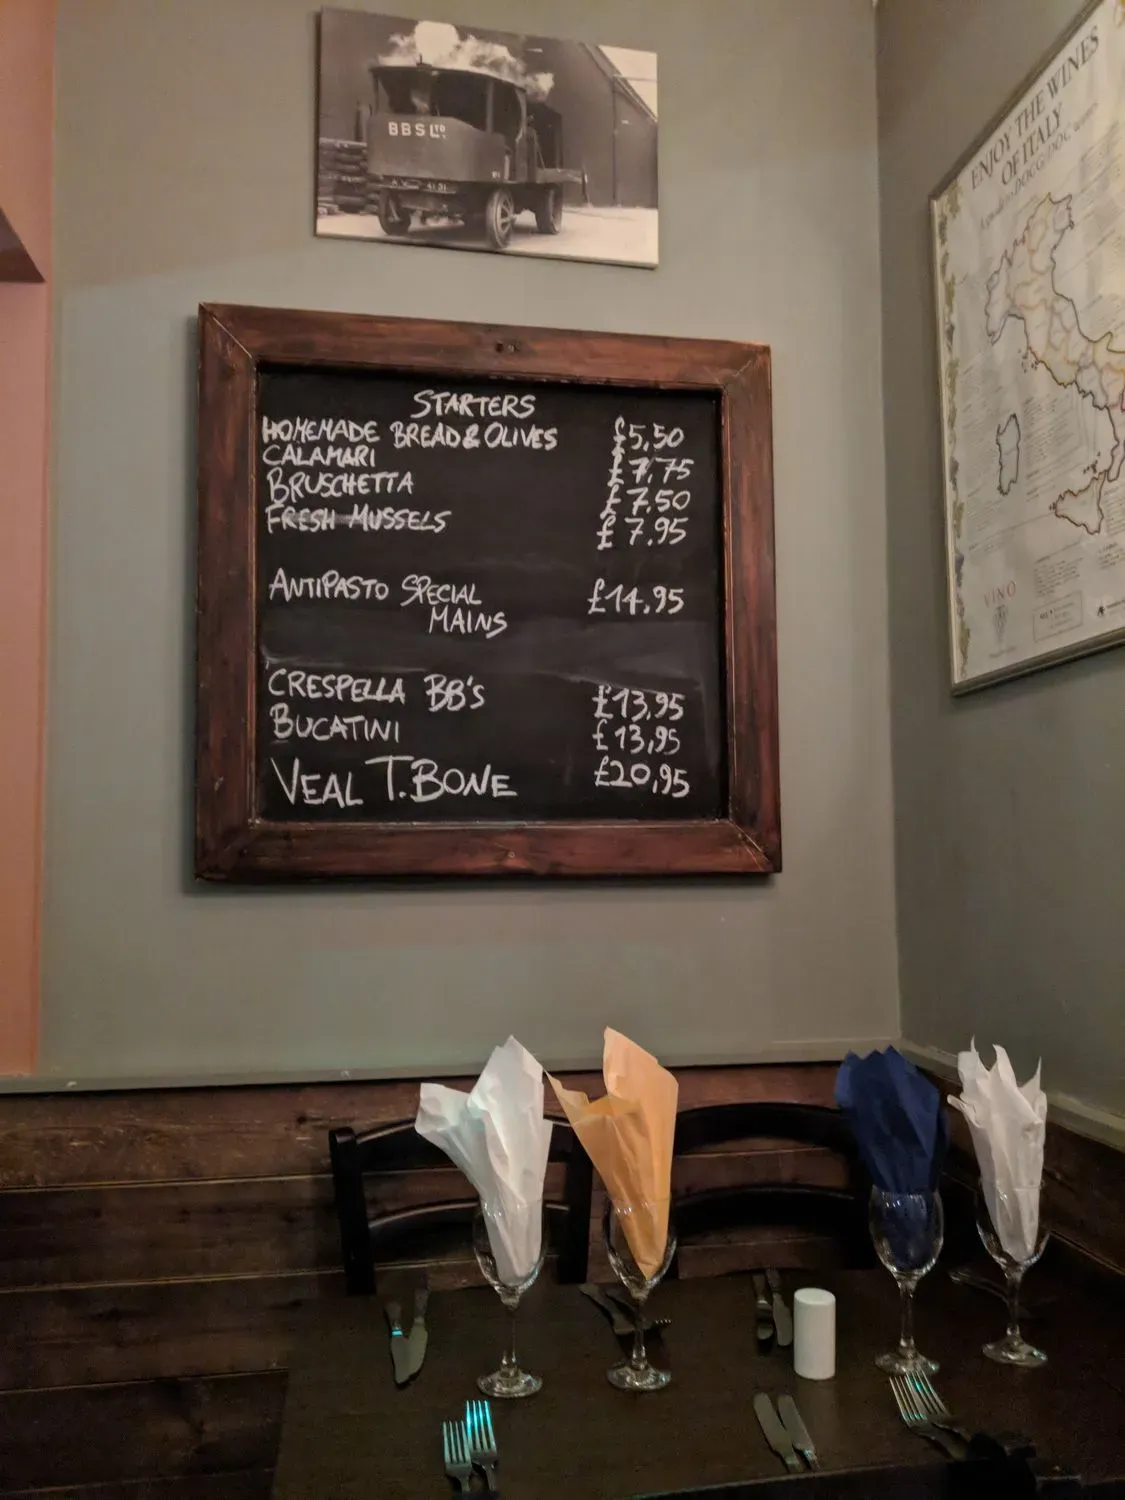 BBS LTD
ENJOY THE WINES
OF ITALY
STARTERS
HOMEMADE BREAD & OLIVES £5,50
CALAMARI £7,75
BRUSCHETTA £7.50
FRESH MUSSELS £7.95
ANTIPASTO SPECIAL £14.95
MAINS
CRESPELLA BB'S £13,95
BUCATINI £13,95
VEAL T.BONE £20,95
VINO